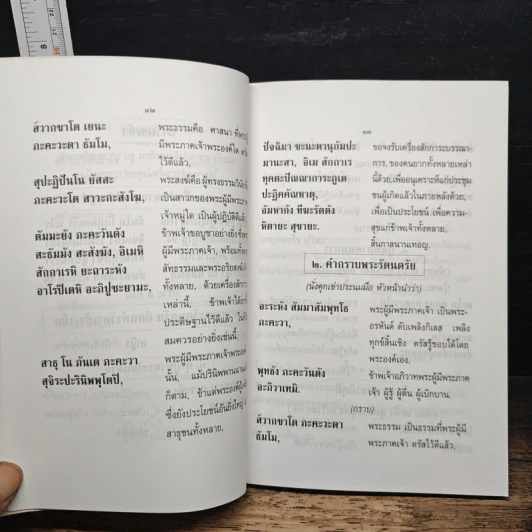 ๑๒
ส๎วากขาโต เยนะ
ภะคะวะตา ธัมโม,
สุปะฏิปันโน ยัสสะ
ภะคะวะโต สาวะกะสังโฆ,
ตัมมะยัง ภะคะวันตัง
สะธัมมัง สะสังฆัง, อิเมหิ
สักกาเรหิ ยะถาระหัง
อาโรปิเตหิ อะภิปูชะยามะ,
สาธุ โน ภันเต ภะคะวา
สุจิระปะรินิพพุโตปิ,
พระธรรมคือ ศาสนา
มีพระภาคเจ้าพระองค์ใด
ไว้ดีแล้ว,
พระสงฆ์คือ ผู้ทรงธรรมวินัย
เป็นสาวกของพระผู้มีพระภาค
เจ้าหมู่ใด เป็นผู้ปฏิบัติดีแล้ว
ข้าพเจ้าขอบูชาอย่างยิ่งซึ่ง
มีพระภาคเจ้า, พร้อมทั้ง
สัทธรรมและพระอริยสงฆ์
ทั้งหลาย, ด้วยเครื่องสักการะ
เหล่านี้, ข้าพเจ้าได้ยก
ประดิษฐานไว้ดีแล้ว
สมควรอย่างยิ่งเช่นนี้.
พระผู้มีพระภาคเจ้าพระองค์
นั้น, แม้ปรินิพพานนาน
ก็ตาม, ข้าแต่พระองค์ผู้เจริญ
ซึ่งยังประโยชน์อันยิ่งใหญ่
สาธุชนทั้งหลาย.
๑๓
ปัจฉิมา ชะนะตานุกัมปะ
มานะสา, อิเม สักกาเร
ทุคคะตะปัณณาการะภูเต
ปะฏิคคัณหาตุ,
อัมหากัง ทีฆะรัตตัง
หิตายะ สุขายะ.
ขอจงรับเครื่องสักการะบรรณา-
การ, ของคนยากทั้งหลายเหล่า
นี้ด้วย,เพื่ออนุเคราะห์แก่ประชุม
ชนผู้เกิดแล้วในภายหลังด้วย,
เพื่อเป็นประโยชน์ เพื่อความ-
สุขแก่ข้าพเจ้าทั้งหลาย,
สิ้นกาลนานเทอญ.
๒. คำกราบพระรัตนตรัย
(นั่งคุกเข่าประนมมือ หัวหน้านำว่า)
อะระหัง สัมมาสัมพุทโธ
ภะคะวา,
พุทธัง ภะคะวันตัง
อะภิวาเทมิ.
พระผู้มีพระภาคเจ้า เป็นพระ-
อรหันต์ ดับเพลิงกิเลส เพลิง
ทุกข์สิ้นเชิง ตรัสรู้ชอบได้โดย
พระองค์เอง.
ข้าพเจ้าอภิวาทพระผู้มีพระภาค
เจ้า ผู้รู้ ผู้ตื่น ผู้เบิกบาน.
(กราบ)
ส๎วากขาโต ภะคะวะตา
ธัมโม,
พระธรรม เป็นธรรมที่พระผู้มี
พระภาคเจ้า ตรัสไว้ดีแล้ว,